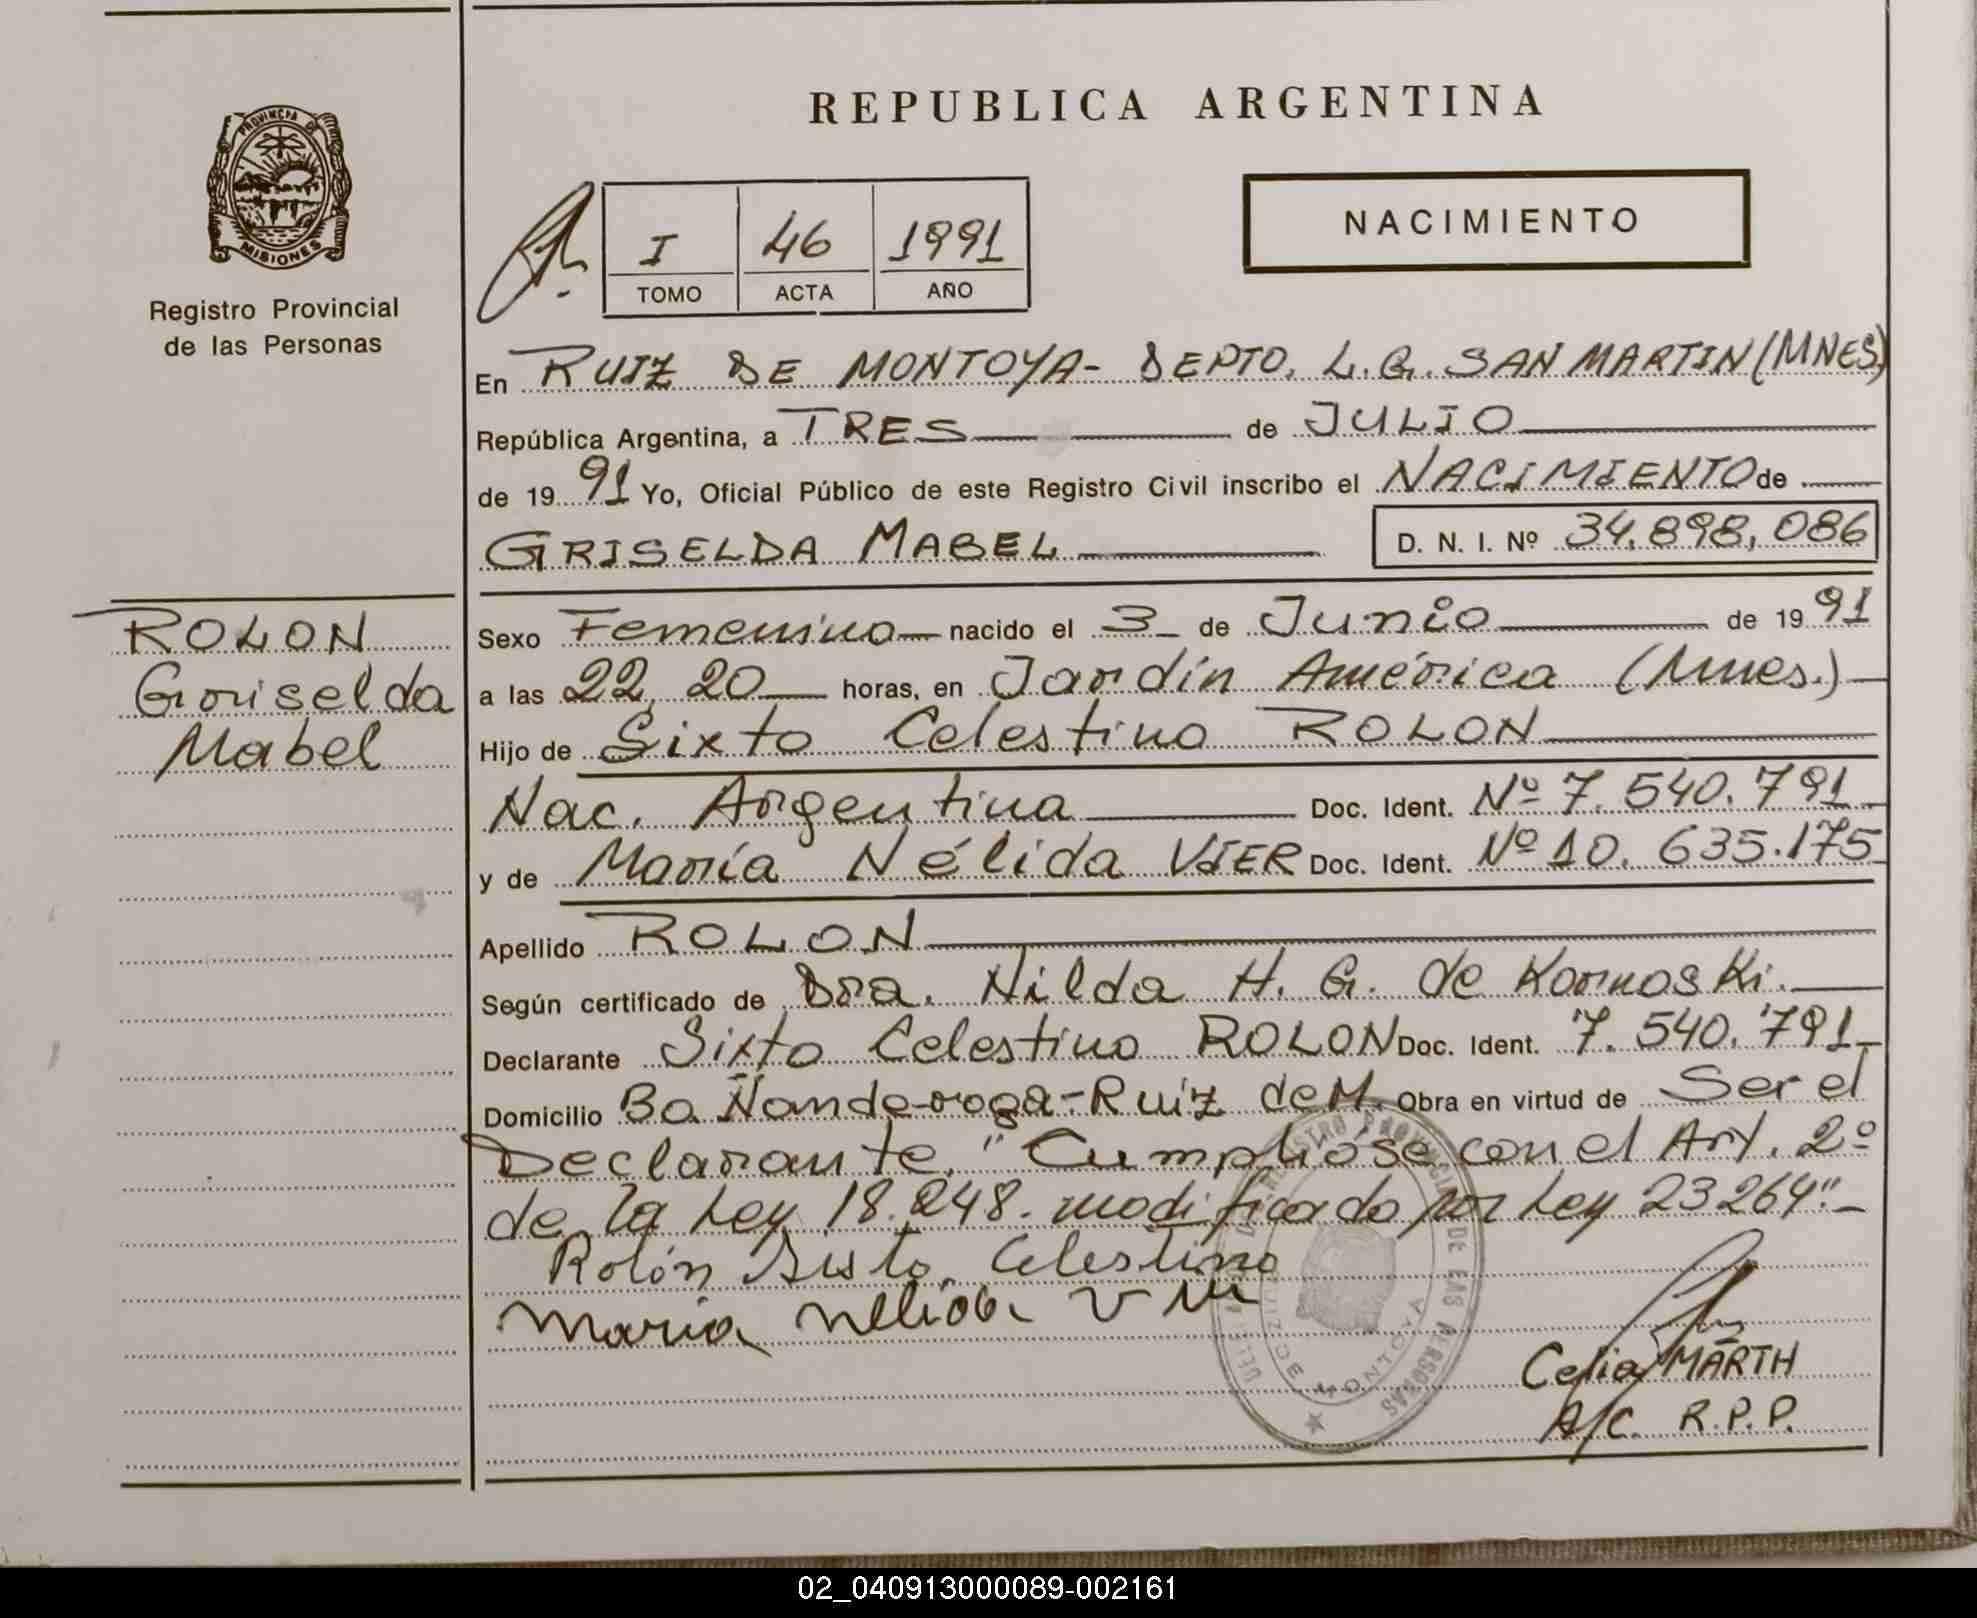 REPUBLICA ARGENTINA
PROVINCIA DE
MISIONES
Registro Provincial
de las Personas
NACIMIENTO
I 46 1991
TOMO ACTA AÑO
En RUIZ DE MONTOYA - DEPTO. L.G. SAN MARTIN (MNES.)
República Argentina, a TRES de JULIO
de 1991 Yo, Oficial Público de este Registro Civil inscribo el NACIMIENTO de
GRISELDA MABEL D. N. I. Nº 34.898,086
ROLON
Griselda
Mabel
Sexo Femenino nacido el 3 de Junio de 1991
a las 22, 20 horas, en Jardín América (Mnes.)
Hijo de Sixto Celestino ROLON
Nac. Argentina Doc. Ident. Nº 7.540.791
y de María Nélida VIER Doc. Ident. Nº 10.635.175
Apellido ROLON
Según certificado de Dra. Nilda H. G. de Kornoski.
Declarante Sixto Celestino ROLON Doc. Ident. 7.540.791
Domicilio Bo. Ñande-roga - Ruiz de M. Obra en virtud de Ser el
Declarante. "Cumplióse con el Art. 2º
de la Ley 18.248. modificado por Ley 23264".-
Rolón Sisto Celestino
Maria Nelida
Celia MARTH
A/C. R.P.P.
REGISTRO PROVINCIAL DE LAS PERSONAS
MONTOYA
02_040913000089-002161